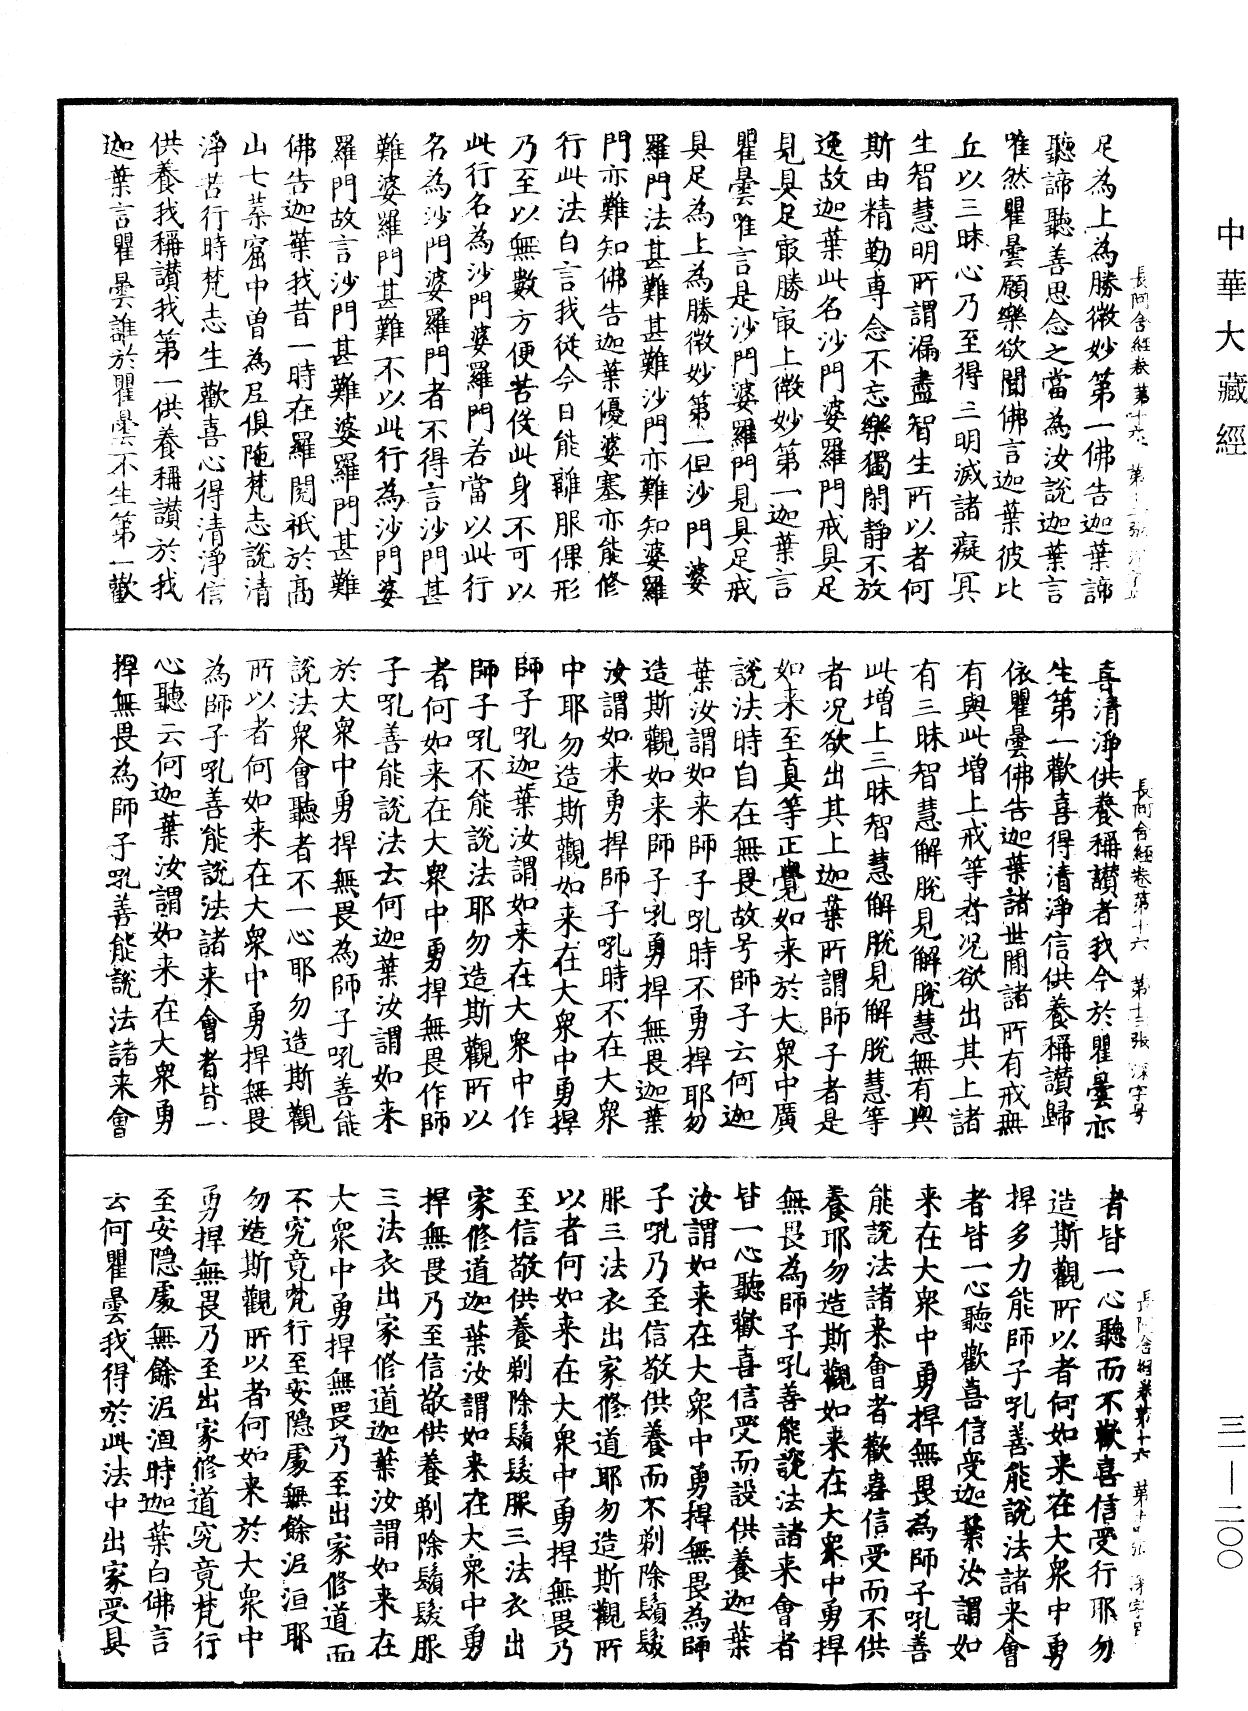 中華大藏經
長阿含經卷第十六
足為上為勝微妙第一佛告迦葉諦
聽諦聽善思念之當為汝說迦葉言
唯然瞿曇願樂欲聞佛言迦葉彼比
丘以三昧心乃至得三明滅諸癡冥
生智慧明所謂漏盡智生所以者何
斯由精勤專念不忘樂獨閑靜不放
逸故迦葉此名沙門婆羅門戒具足
見具足㝡勝㝡上微妙第一迦葉言
瞿曇唯言是沙門婆羅門見具足戒
具足為上為勝微妙第一但沙門婆
羅門法甚難甚難沙門亦難知婆羅
門亦難知佛告迦葉優婆塞亦能修
行此法白言我從今日能離服倮形
乃至以無數方便苦役此身不可以
此行名為沙門婆羅門若當以此行
名為沙門婆羅門者不得言沙門甚
難婆羅門甚難不以此行為沙門婆
羅門故言沙門甚難婆羅門甚難
佛告迦葉我昔一時在羅閱祇於高
山七葉窟中曾為尼俱陁梵志說清
淨苦行時梵志生歡喜心得清淨信
供養我稱讚我第一供養稱讚於我
迦葉言瞿曇誰於瞿曇不生第一歡
長阿含經卷第十六 第十三張 深字号
喜清淨供養稱讚者我今於瞿曇亦
生第一歡喜得清淨信供養稱讚歸
依瞿曇佛告迦葉諸世間諸所有戒無
有與此增上戒等者況欲出其上諸
有三昧智慧解脫見解脫慧無有與
此增上三昧智慧解脫見解脫慧等
者況欲出其上迦葉所謂師子者是
如来至真等正覺如来於大衆中廣
說法時自在無畏故号師子云何迦
葉汝謂如来師子吼時不勇捍耶勿
造斯觀如来師子吼勇捍無畏迦葉
汝謂如来勇捍師子吼時不在大衆
中耶勿造斯觀如来在大衆中勇捍
師子吼迦葉汝謂如来在大衆中作
師子吼不能說法耶勿造斯觀所以
者何如来在大衆中勇捍無畏作師
子吼善能說法云何迦葉汝謂如来
於大衆中勇捍無畏為師子吼善能
說法衆會聽者不一心耶勿造斯觀
所以者何如来在大衆中勇捍無畏
為師子吼善能說法諸来會者皆一
心聽云何迦葉汝謂如来在大衆勇
捍無畏為師子吼善能說法諸来會
長阿含經卷第十六
者皆一心聽而不歡喜信受行耶勿
造斯觀所以者何如来在大衆中勇
捍多力能師子吼善能說法諸来會
者皆一心聽歡喜信受迦葉汝謂如
来在大衆中勇捍無畏為師子吼善
能說法諸来會者歡喜信受而不供
養耶勿造斯觀如来在大衆中勇捍
無畏為師子吼善能說法諸来會者
皆一心聽歡喜信受而設供養迦葉
汝謂如来在大衆中勇捍無畏為師
子吼乃至信敬供養而不剃除鬚髮
服三法衣出家修道耶勿造斯觀所
以者何如来在大衆中勇捍無畏乃
至信敬供養剃除鬚髮服三法衣出
家修道迦葉汝謂如来在大衆中勇
捍無畏乃至信敬供養剃除鬚髮服
三法衣出家修道迦葉汝謂如来在
大衆中勇捍無畏乃至出家修道而
不究竟梵行至安隱處無餘泥洹耶
勿造斯觀所以者何如来於大衆中
勇捍無畏乃至出家修道究竟梵行
至安隱處無餘泥洹時迦葉白佛言
云何瞿曇我得於此法中出家受具
三一—二〇〇